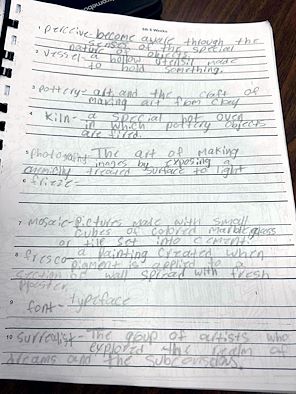 6th 6 Weeks
1 perceive- become aware through the
senses of the special
nature of objects
2 vessel- a hollow utensil made
to hold something.
3 pottery- art and the craft of
making art from clay
4 Kiln- a special hot oven
in which pottery objects
are fired.
5 The art of making
images by exposing a
chemically treated surface to light
6 frieze-
7 mosaic- Pictures made with small
cubes of colored marble, glass
or tile set into cement.
8 fresco- a painting created when
pigment is applied to a
section of wall spread with fresh
plaster.
9 font- typeface
10 surrealist- The group of artists who
explored the realm of
dreams and the subconscious.